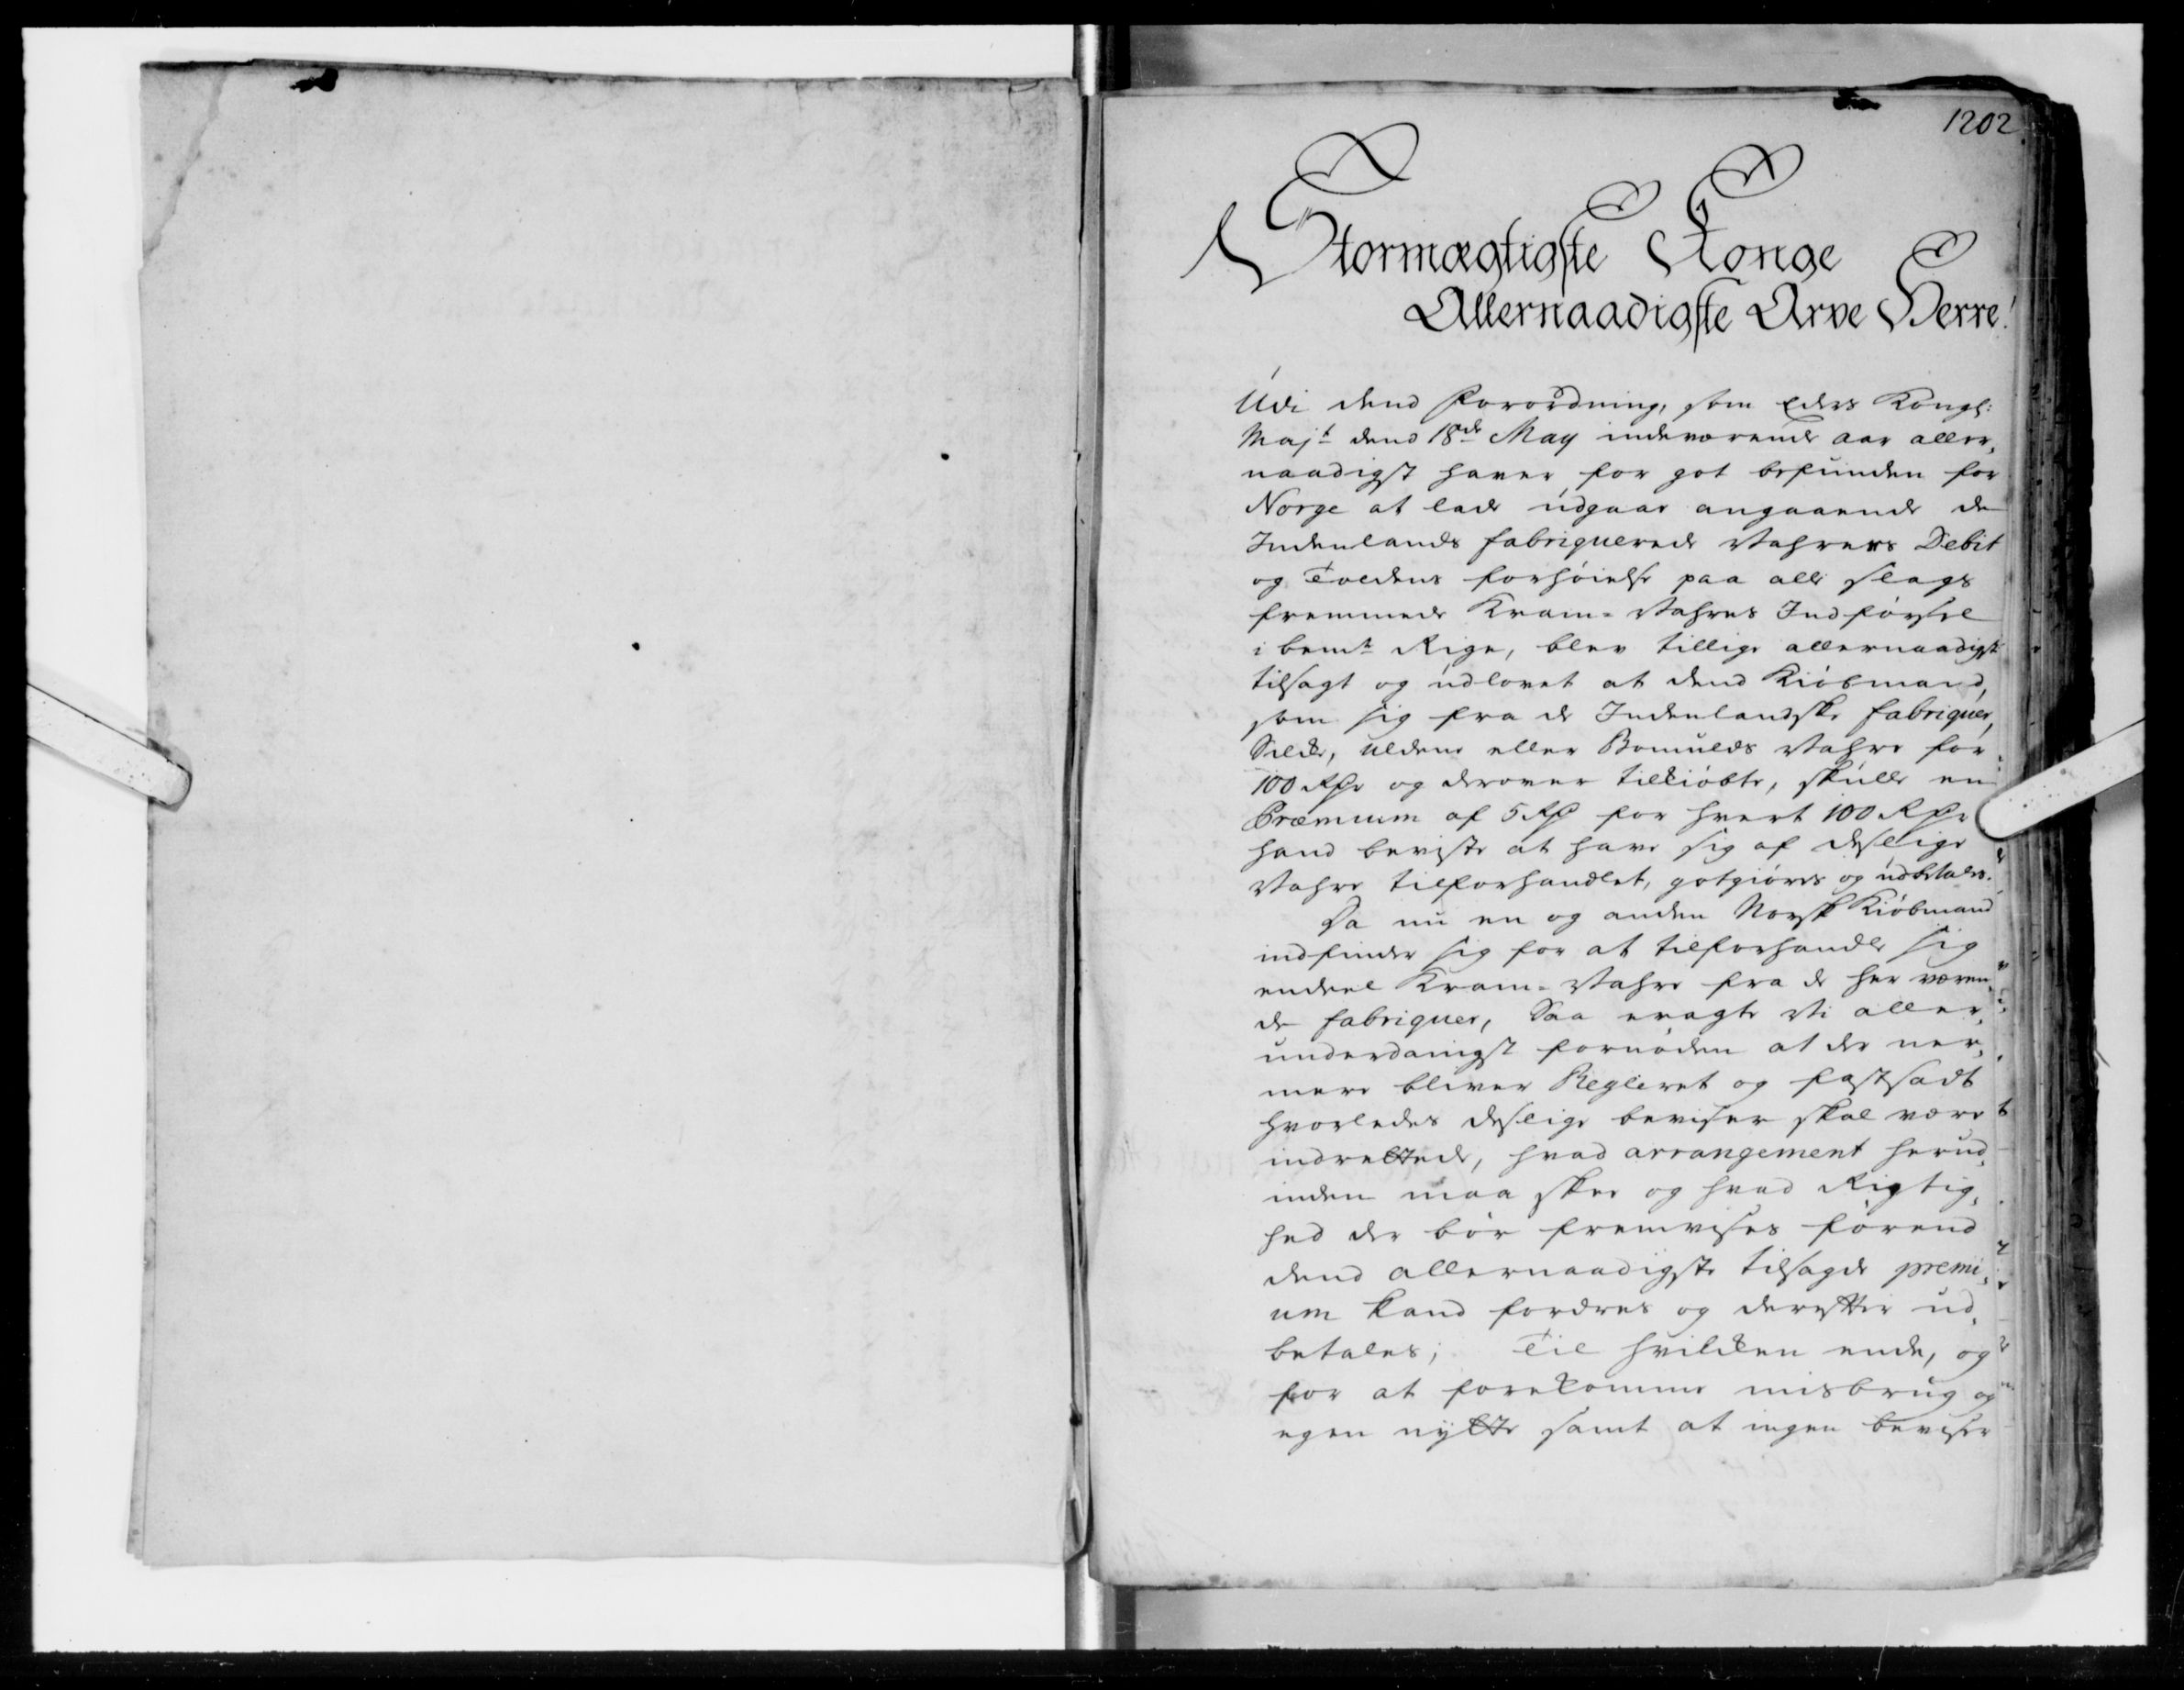 1202
Stormægtigste Konge
Allernaadigste Arve Herre!
Udi dend Forordning, som Eders Kongl:
Majt dend 18de May indeværende aar aller,
naadigst haver for got befunden for
Norge at lade udgaae angaaende de
Indenlands fabriquerede Vahrers Debit
og Toldens forhøielse paa alle slags
fremmede Kram- Vahres Indførsel
i bemte Rige, blev tillige allernaadigst
tilsagt og udlovet at dend Kiøbmand,
som sig fra de Indenlandske fabriquer,
Silke, uldene eller Bomulds Vahre for
100 Rdr og derover tilkiøbte, skulle en
Præmium af 5 Rd for hvert 100 Rdr
hand beviste at have sig af deslige
Vahre tilforhandlet, gotgiøres og udbetales.
Da nu en og anden Norsk Kiøbmand
indfinder sig for at tilforhandle sig
endeel Kram- Vahre fra de her væren,
de fabriquer, Saa eragte Vi aller,
underdanigst fornøden at der ner,
mere bliver Regleret og fastsadt
hvorledes deslige beviser skal være
indrettede, hvad arrangement herud,
inden maa skee og hvad Rigtig,
hed der bør fremvises førend
dend allernaadigste tilsagde premi,
um kand fordres og derefter ud,
betales; Til hvilken ende, og
for at forekomme misbrug og
egen nytte samt at ingen beviser